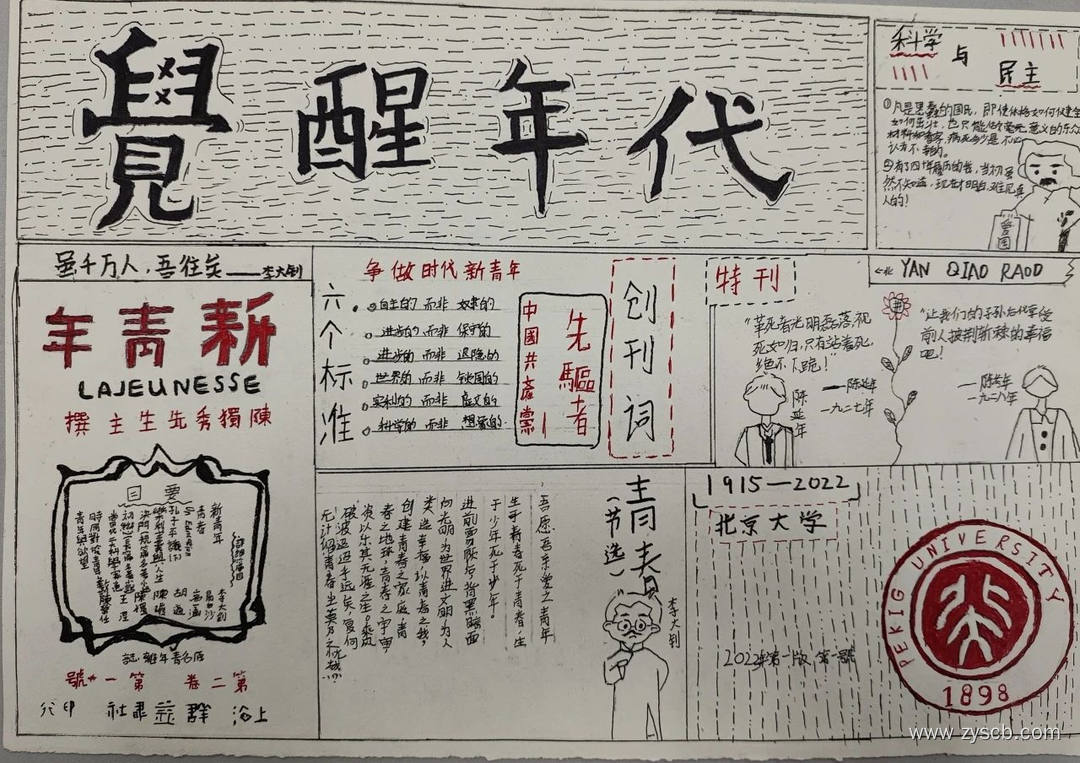 覺醒年代
科学
与
民主
①凡是愚弱的国民，即使体格如何健全
如何茁壮，也只能做毫无意义的示众
材料和看客，病死多少是不必
认为不幸的。
②有了四千年履历的我，当初虽
然不知道，现在明白，难见真
人的！
虽千万人，吾往矣——李大钊
新青年
LAJEUNESSE
陳獨秀先生主撰
要目
新青年
李大钊
胡適
陳獨秀
青年與欲望
記雜年青名原
第二卷 第一號
上海群益書社印行
争做时代新青年
六个标准
自主的 而非 奴隶的
进步的 而非 保守的
进取的 而非 退隐的
世界的 而非 锁国的
实利的 而非 虚文的
科学的 而非 想象的
先驅者
中國共產黨
创刊词
特刊
YAN QIAO RAOD
"革死者光明磊落，视
死如归，只有站着死，
绝不下跪！"
——陈延年
一九二七年
陈延年
"让我们的子孙后代享受
前人披荆斩棘的幸福
吧！
——陈乔年
一九二八年
青春
(节选)
吾愿吾亲爱之青年，
生于青春死于青春，生
于少年死于少年。
进前而勿顾后，背黑暗而
向光明，为世界进文明，为人
类造幸福，以青春之我，
创建青春之家庭，青
春之地球，青春之宇宙，
资以乐其无涯之生。乘风
破浪，迢迢乎远矣，复何
无计留春望尘莫及之忧哉？
李大钊
1915—2022
北京大学
2022年第一版 第一號
PEKIG UNIVERSITY
1898
www.zyscb.com